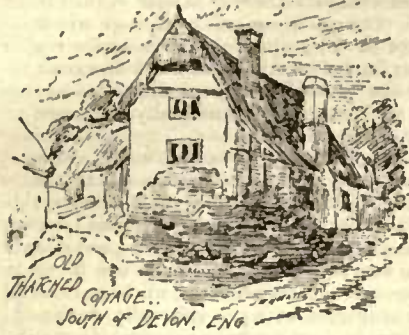 OLD
THATCHED
COTTAGE..
SOUTH OF DEVON, ENG